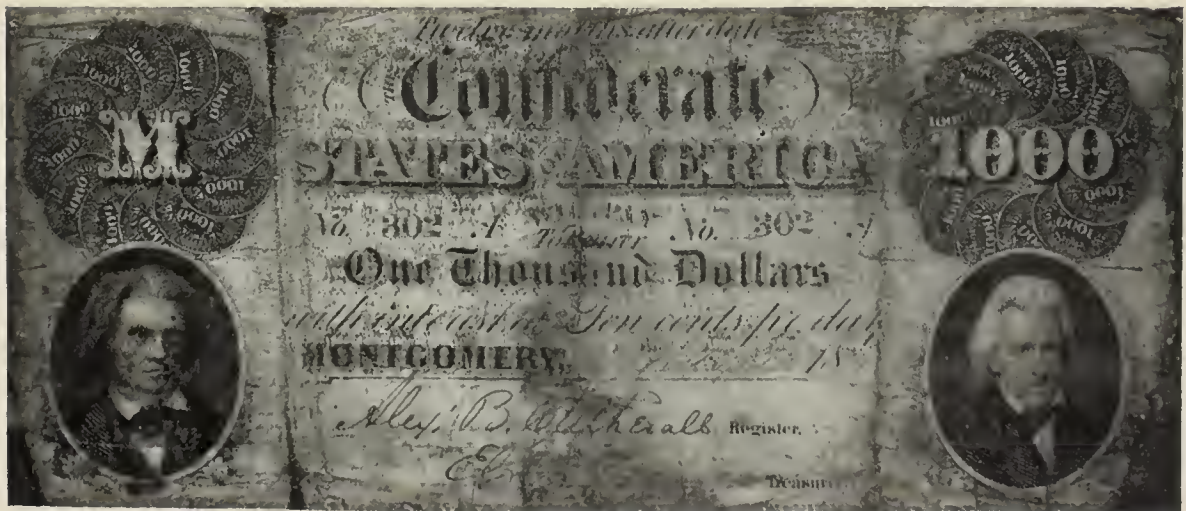 Twelve months after date
THE
Confederate
STATES OF AMERICA
M
1000
No. 302 A No. 302 A
Treasurer
One Thousand Dollars
with interest at Ten cents per day
MONTGOMERY,
Alex. B. Clitherall Register.
Treasurer